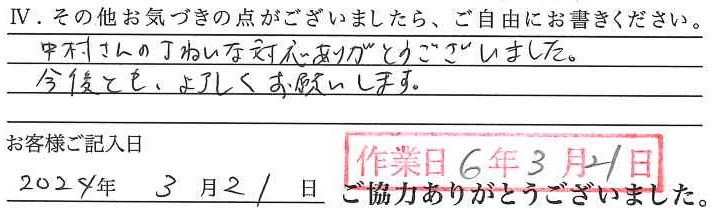 Ⅳ．その他お気づきの点がございましたら、ご自由にお書きください。
中村さんの丁ねいな対応ありがとうございました。
今後とも、よろしくお願いします。
お客様ご記入日
作業日 6年3月21日
2024年 3月21日
ご協力ありがとうございました。